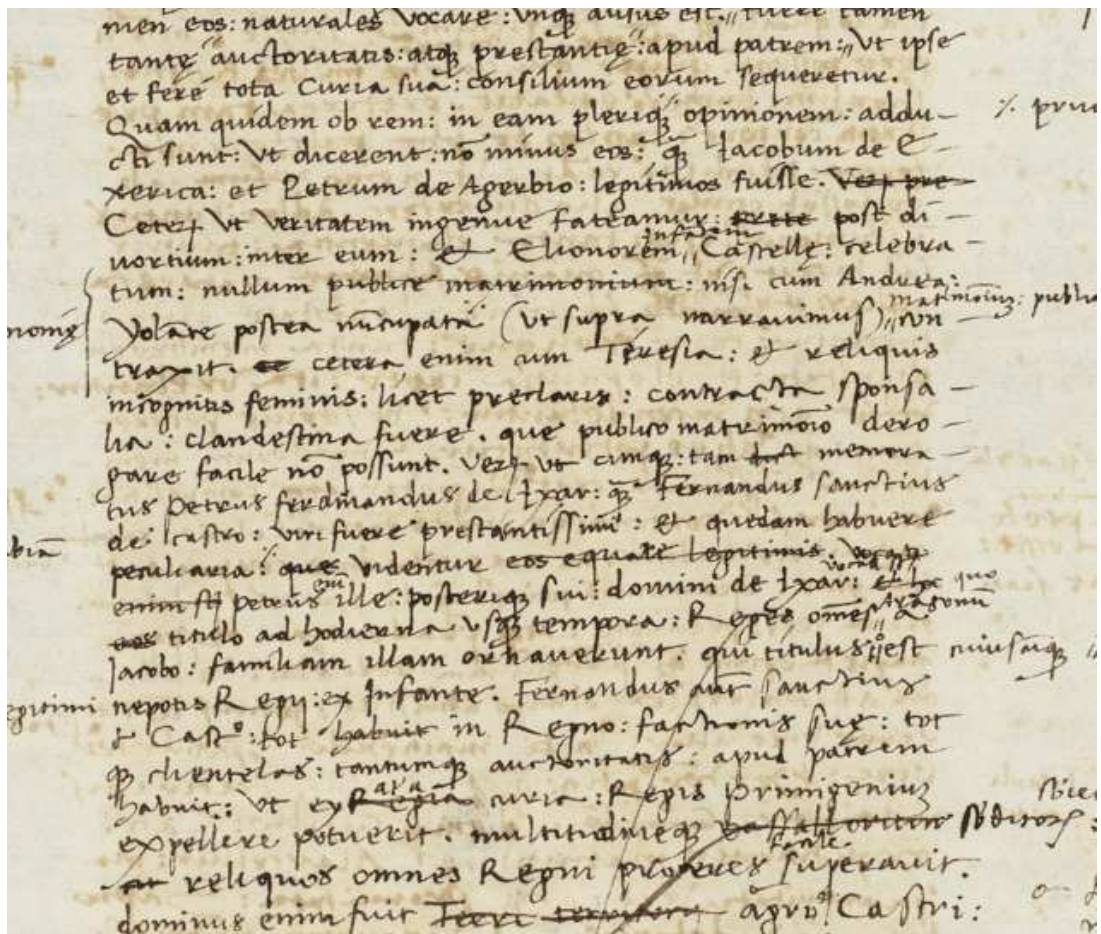 men eos: naturales vocare: vnq̃ ausus est. fuere tamen
tantę auctoritatis: atq̃ prestantię: apud patrem: vt ipse
et ferè tota Curia sua: consilium eorum sequeretur.
Quam quidem ob rem: in eam pleriq̃ opinionem: addu-
cti sunt: vt dicerent: nõ minus eos: q̃ Iacobum de E-
xerica: et Petrum de Agerbio: legitimos fuisse.
Ceterũ vt veritatem ingenue fateamur: post di-
uortium: inter eum: et Elionorem infantem Castellę: celebra
tum: nullum publice matrimonium: nisi cum Andrea:
Yolãte postea nũcupata (vt supra narrauimus) con-
traxit. cetera enim cum Teresia: et reliquis
incognitis feminis: licet preclaris: contracta sponsa-
lia: clandestina fuere. que publico matrimõio dero-
gare facile nõ possunt. Verũ vt cunq̃: tam memora-
tus Petrus ferdinandus de Ixar: q̃ Fernandus sanctius
de castro: viri fuere prestantissimi: et quedam habuere
peculiaria: que videntur eos equare legitimis.
Petrus ille: posteriq̃ sui: domini de Ixar: quo
titulo ad hodierna vsq̃ tempora: Reges omẽs Aragonũ
Iacobo: familiam illam ornauerunt. qui titulus est cuiusãq̃
nepotis Regij: ex Infante. Fernandus aũt sanctius
d Castº: tot habuit in Regno: factionis suę: tot
q̃ clientelas: tantumq̃ auctoritatis: apud patrem
habuit: vt ex curia: Regis Primigenium
expellere potuerit. multitudineq̃ sŭbditorũ:
reliquos omnes Regni proceres facile superauit.
dominus enim fuit agro Castri: